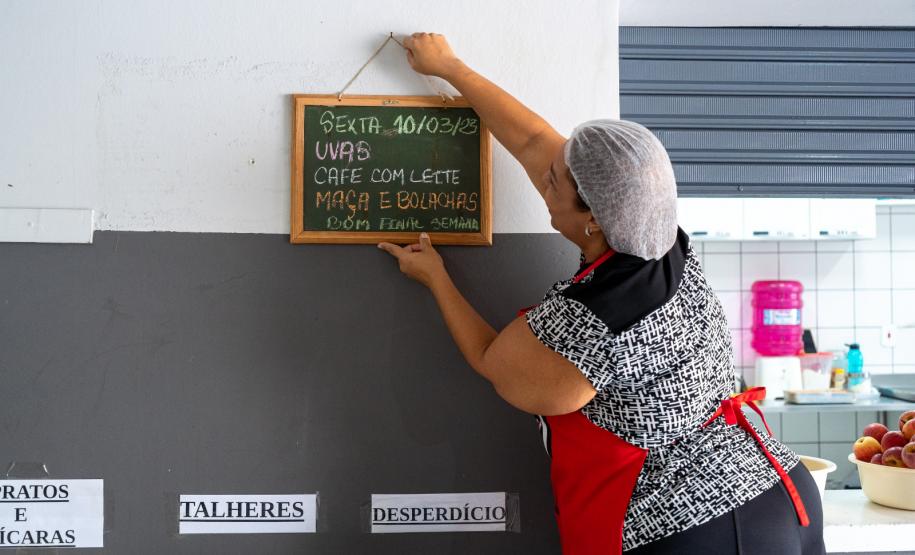 SEXTA 10/03/23
UVAS
CAFE COM LEITE
MAÇA E BOLACHAS
BOM FINAL SEMANA
PRATOS
E
ÍCARAS
TALHERES
DESPERDÍCIO